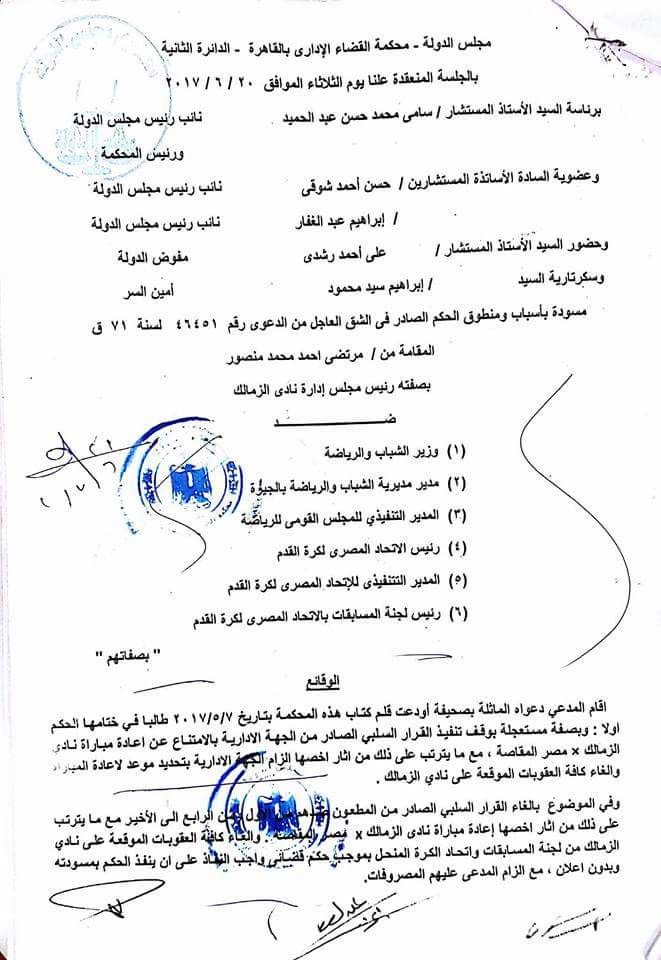 مجلس الدولة - محكمة القضاء الإدارى بالقاهرة - الدائرة الثانية
بالجلسة المنعقدة علنا يوم الثلاثاء الموافق ٢٠ / ٦ / ٢٠١٧
برئاسة السيد الأستاذ المستشار / سامى محمد حسن عبد الحميد نائب رئيس مجلس الدولة
ورئيس المحكمة
وعضوية السادة الأساتذة المستشارين / حسن أحمد شوقى نائب رئيس مجلس الدولة
/ إبراهيم عبد الغفار نائب رئيس مجلس الدولة
وحضور السيد الأستاذ المستشار / على أحمد رشدى مفوض الدولة
وسكرتارية السيد / إبراهيم سيد محمود أمين السر
مسودة بأسباب ومنطوق الحكم الصادر فى الشق العاجل من الدعوى رقم ٤٦٤٥١ لسنة ٧١ ق
المقامة من / مرتضى احمد محمد منصور
بصفته رئيس مجلس إدارة نادى الزمالك
ضـــــــــــــد
(١) وزير الشباب والرياضة
(٢) مدير مديرية الشباب والرياضة بالجيزة
(٣) المدير التنفيذي للمجلس القومى للرياضة
(٤) رئيس الاتحاد المصرى لكرة القدم
(٥) المدير التتنفيذى للإتحاد المصرى لكرة القدم
(٦) رئيس لجنة المسابقات بالاتحاد المصرى لكرة القدم
" بصفاتهم "
الوقائع
اقام المدعي دعواه الماثلة بصحيفة أودعت قلم كتاب هذه المحكمة بتاريخ ٢٠١٧/٥/٧ طالبا في ختامها الحكم
اولا : وبصفة مستعجلة بوقف تنفيذ القرار السلبي الصادر من الجهة الادارية بالامتناع عن اعادة مباراة نادي
الزمالك × مصر المقاصة ، مع ما يترتب على ذلك من اثار اخصها الزام الجهة الادارية بتحديد موعد لاعادة المباراة
والغاء كافة العقوبات الموقعة على نادي الزمالك .
وفي الموضوع بالغاء القرار السلبي الصادر من المطعون ضدهم من الأول الرابع الى الأخير مع ما يترتب
على ذلك من اثار اخصها إعادة مباراة نادى الزمالك x مصر المقاصة . والغاء كافة العقوبات الموقعة على نادي
الزمالك من لجنة المسابقات واتحاد الكرة المنحل بموجب حكم قضائى واجب النفاذ على ان ينفذ الحكم بمسودته
وبدون اعلان ، مع الزام المدعى عليهم المصروفات.